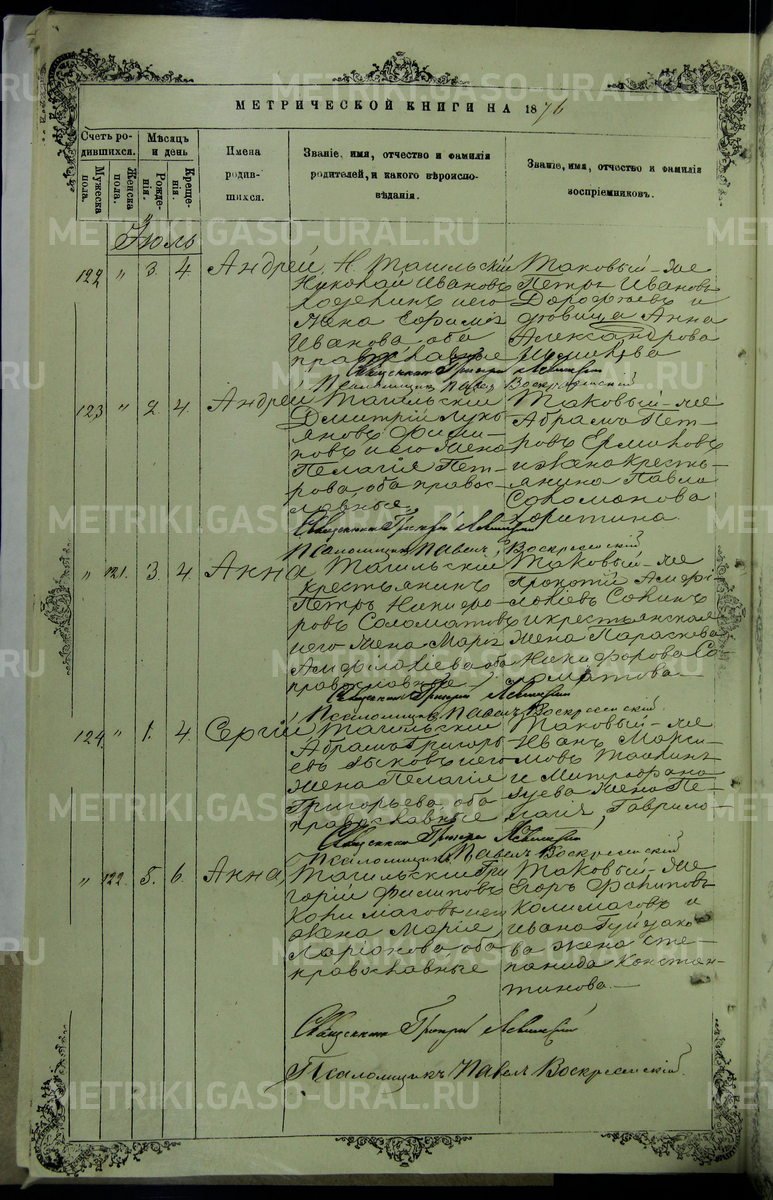 МЕТРИЧЕСКОЙ КНИГИ НА 1876
Счетъ родившихся.
Мужеска пола.
Женска пола.
Мѣсяцъ и день
Рожденія.
Крещенія.
Имена родившихся.
Званіе, имя, отчество и фамилія родителей, и какого вѣроисповѣданія.
Званіе, имя, отчество и фамилія воспріемниковъ.
Іюль
122 " 3. 4. Андрей
Н. Тагильскій
Николай Ивановъ
и его
жена
Иванова, оба
православные
Таковый-же
Петръ Ивановъ
Дорофѣевъ и
дѣвица Анна
Александрова
Священникъ Григорій Левицкій
Псаломщикъ Павелъ Воскресенскій
123 " 2. 4. Андрей
Тагильскій
Дмитрій Лукь
яновъ
и его жена
Пелагія Пет-
рова, оба правос-
лавные
Таковый-же
Абрамъ Пет-
ровъ Ермаковъ
и жена кресть-
янина Павла
Соломонова
Харитина.
Священникъ Григорій Левицкій
Псаломщикъ Павелъ Воскресенскій
" 121. 3. 4. Анна
Тагильскій
крестьянинъ
Петръ Никифо-
ровъ Соломатовъ
и его жена Марія
Амфилохіева оба
православные
Таковый-же
Прокопій Амфи-
лохіевъ
и крестьянская
жена Параскева
Никифорова Со-
ломатова
Священникъ Григорій Левицкій
Псаломщикъ Павелъ Воскресенскій
124. " 1. 4. Сергій
Тагильскій
Абрамъ Григорь-
евъ Зыковъ и его
жена Пелагія
Григорьева, оба
православные
Таковый-же
Иванъ
и Митрофана
Зуева жена Пе-
лагія, Гаврило-
Священникъ Григорій Левицкій
Псаломщикъ Павелъ Воскресенскій
" 122. 5. 6. Анна
Тагильскій Гри
горій Филиповъ
и его
жена Марія
Ларіонова оба
православные
Таковый-же
Егоръ
Колмаговъ и
Ивана
жена Сте-
панида Констан-
тинова.
Священникъ Григорій Левицкій
Псаломщикъ Павелъ Воскресенскій
METRIKI.GASO-URAL.RU